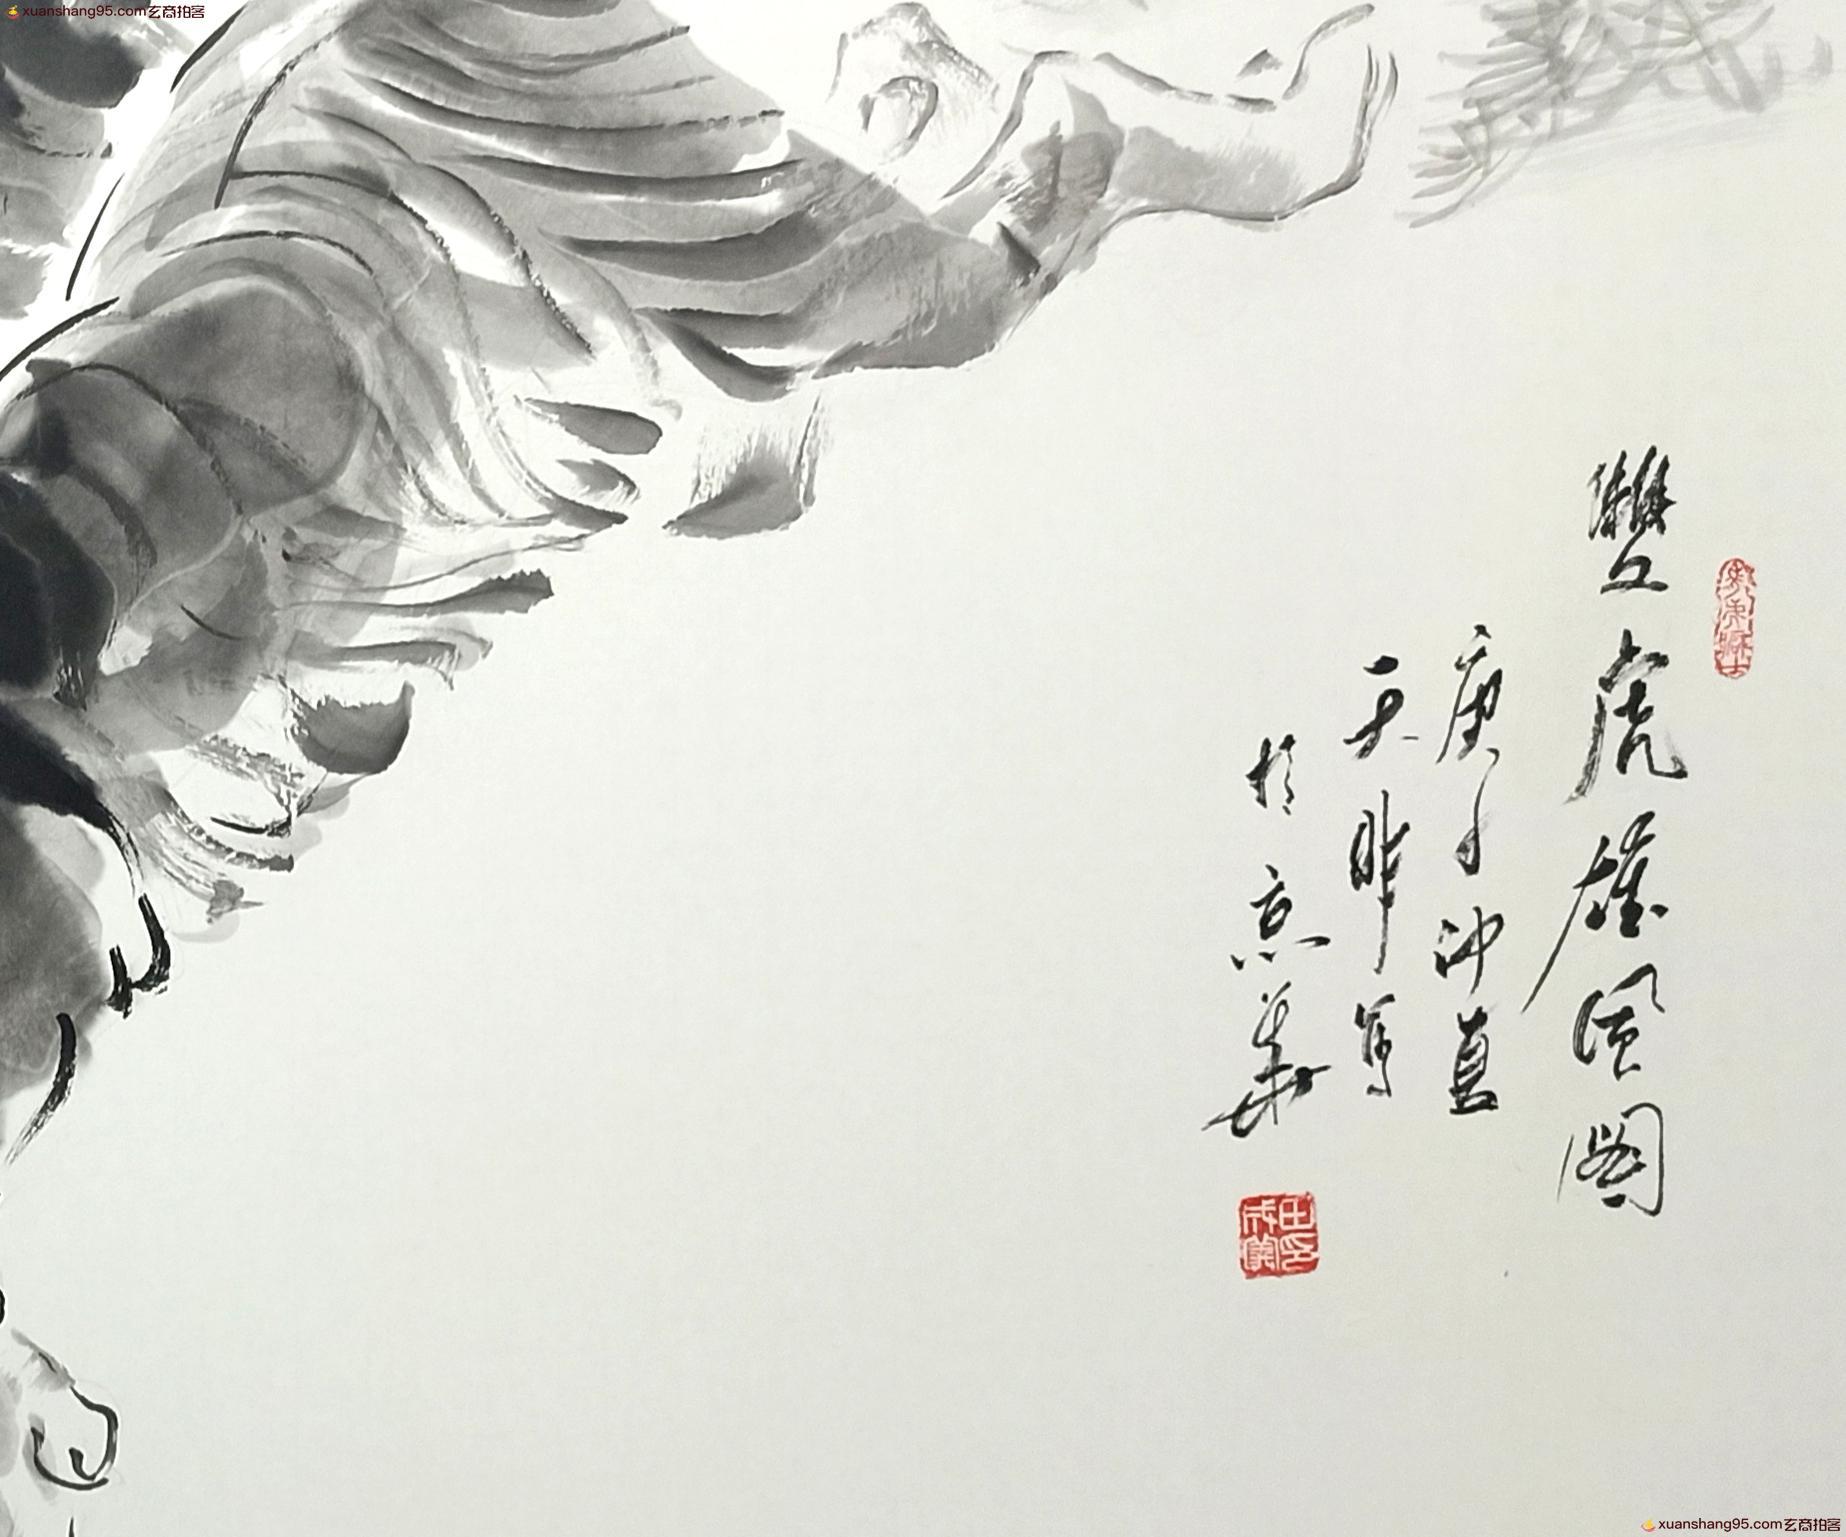 xuanshang95.com玄商拍客
雙虎雄风图
庚子冲真
天非写
于京華
田印
成義
xuanshang95.com玄商拍客